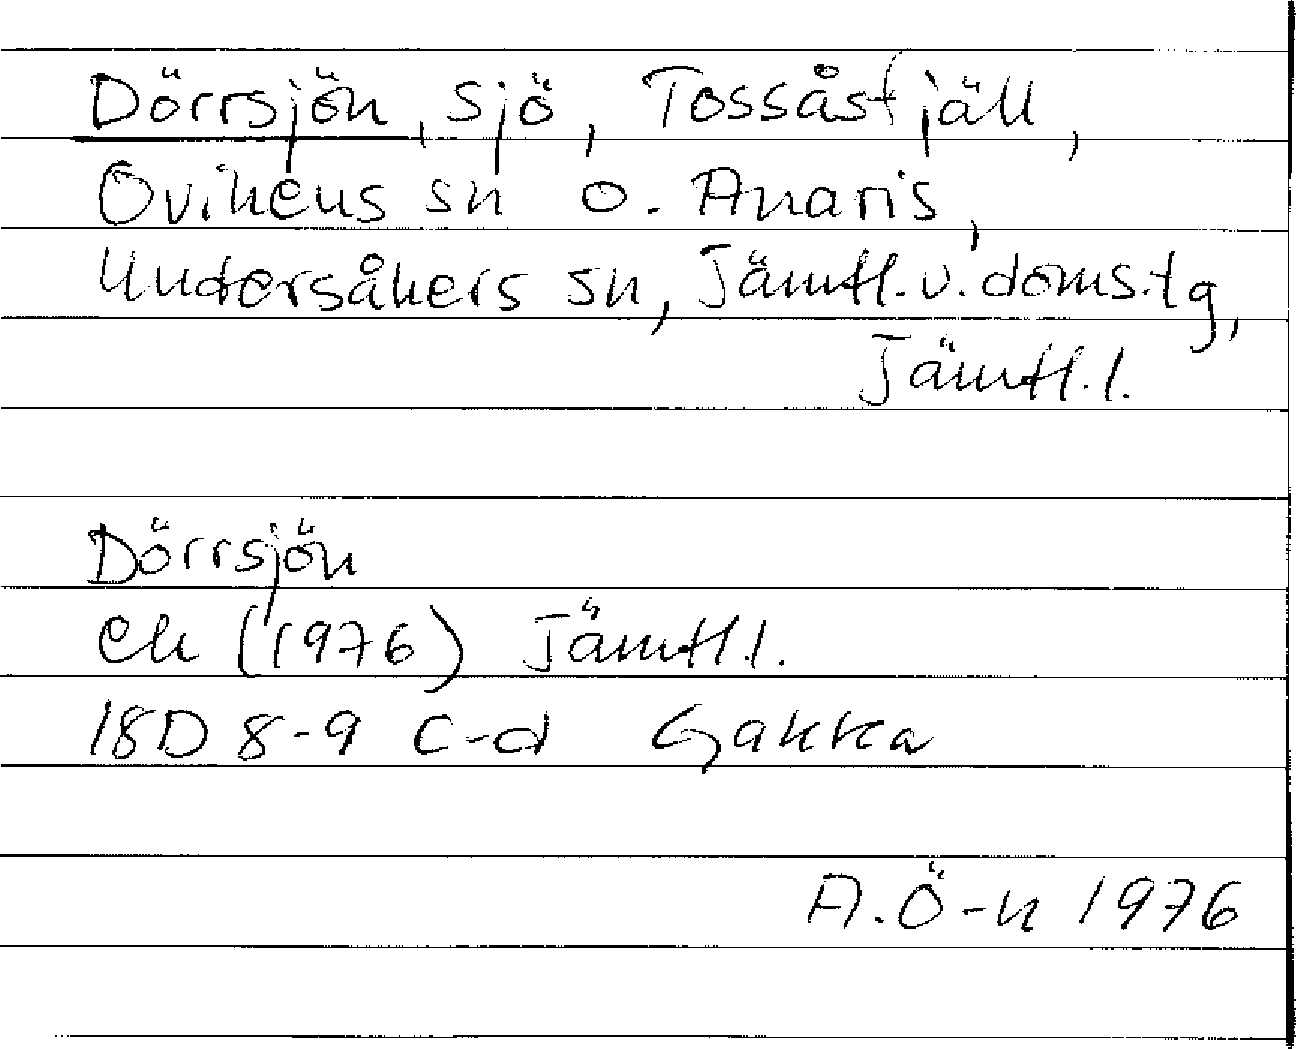 Dörrsjön, sjö, Tossåsfjäll,
Ovikens sn o. Anaris,
Undersåkers sn, Jämtl. v. doms.tg,
Jämtl. l.
Dörrsjön
ek (1976) Jämtl. l.
18D 8-9 c-d Gakka
A. Ö-n 1976